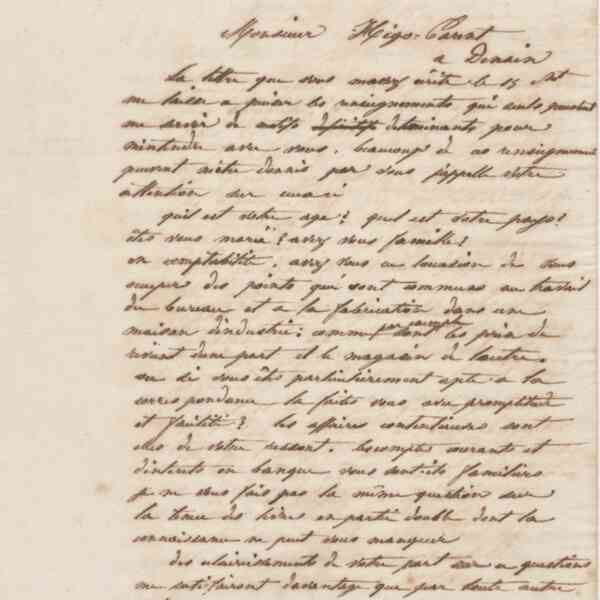 Monsieur Higo-Carent
a Denain
La lettre que vous mavez écrite le 15 Ct
me laisse a puiser les renseignements qui seuls peuvent
me servir de motifs definitifs determinants pour
m'entendre avec vous. beaucoup de ces renseignements
peuvent mètre donnés par vous j'appelle votre
attention sur ceux ci
quil est votre age? quel est votre pays?
êtes vous marié? avez vous famille?
en comptabilité. avez vous eu loccasion de vous
occuper des points qui sont communs au travail
du bureau et a la fabrication dans une
maison dindustrie: comme par exemple sont les prix de
revient dune part et le magasin de lautre.
ou si vous êtes particulièrement apte a la
correspondance la faites vous avec promptitude
et facilité? les affaires contentieuses sont
elles de votre ressort. les comptes courants et
dinterets en banque vous sont-ils familiers
je ne vous fais pas la même question sur
la tenue des livres en partie double dont la
connaissance ne peut vous manquer
des eclaircissements de votre part sur ces questions
me satisfairont davantage que par toute autre